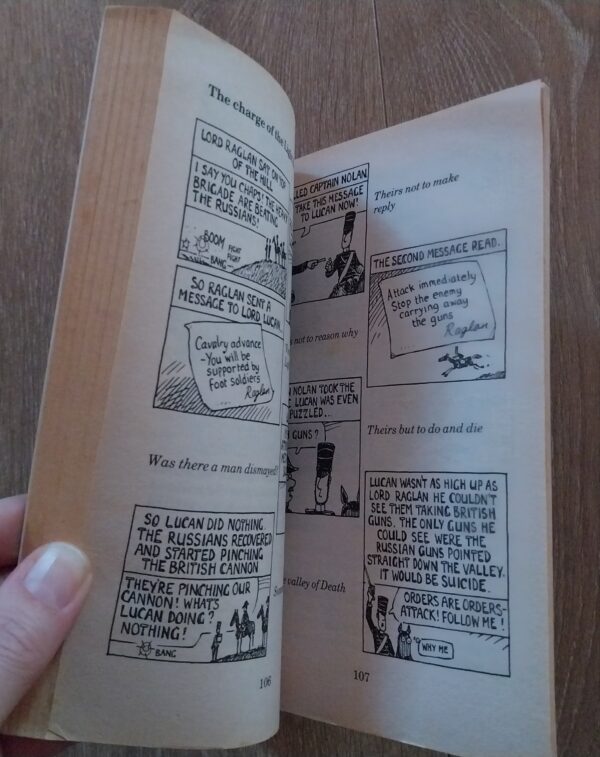 The charge of the
LORD RAGLAN SAY ON TOP
OF THE HILL
I SAY YOU CHAPS! THE HEAVY
BRIGADE ARE BEATING
THE RUSSIANS!
BOOM
FIGHT
FIGHT
BANG
SO RAGLAN SENT A
MESSAGE TO LORD LUCAN
Cavalry advance
-You will be
supported by
Foot soldiers
Raglan
Was there a man dismayed?
SO LUCAN DID NOTHING.
THE RUSSIANS RECOVERED
AND STARTED PINCHING
THE BRITISH CANNON
THEY'RE PINCHING OUR
CANNON! WHATS
LUCAN DOING?
NOTHING!
BANG
106
CAPTAIN NOLAN
TAKE THIS MESSAGE
TO LUCAN NOW!
Theirs not to make
reply
THE SECOND MESSAGE READ.
Attack immediately
Stop the enemy
carrying away
the guns
Raglan
not to reason why
NOLAN TOOK THE
LUCAN WAS EVEN
PUZZLED...
GUNS?
Theirs but to do and die
LUCAN WASN'T AS HIGH UP AS
LORD RAGLAN HE COULDN'T
SEE THEM TAKING BRITISH
GUNS. THE ONLY GUNS HE
COULD SEE WERE THE
RUSSIAN GUNS POINTED
STRAIGHT DOWN THE VALLEY.
IT WOULD BE SUICIDE.
ORDERS ARE ORDERS-
ATTACK! FOLLOW ME!
WHY ME
valley of Death
107